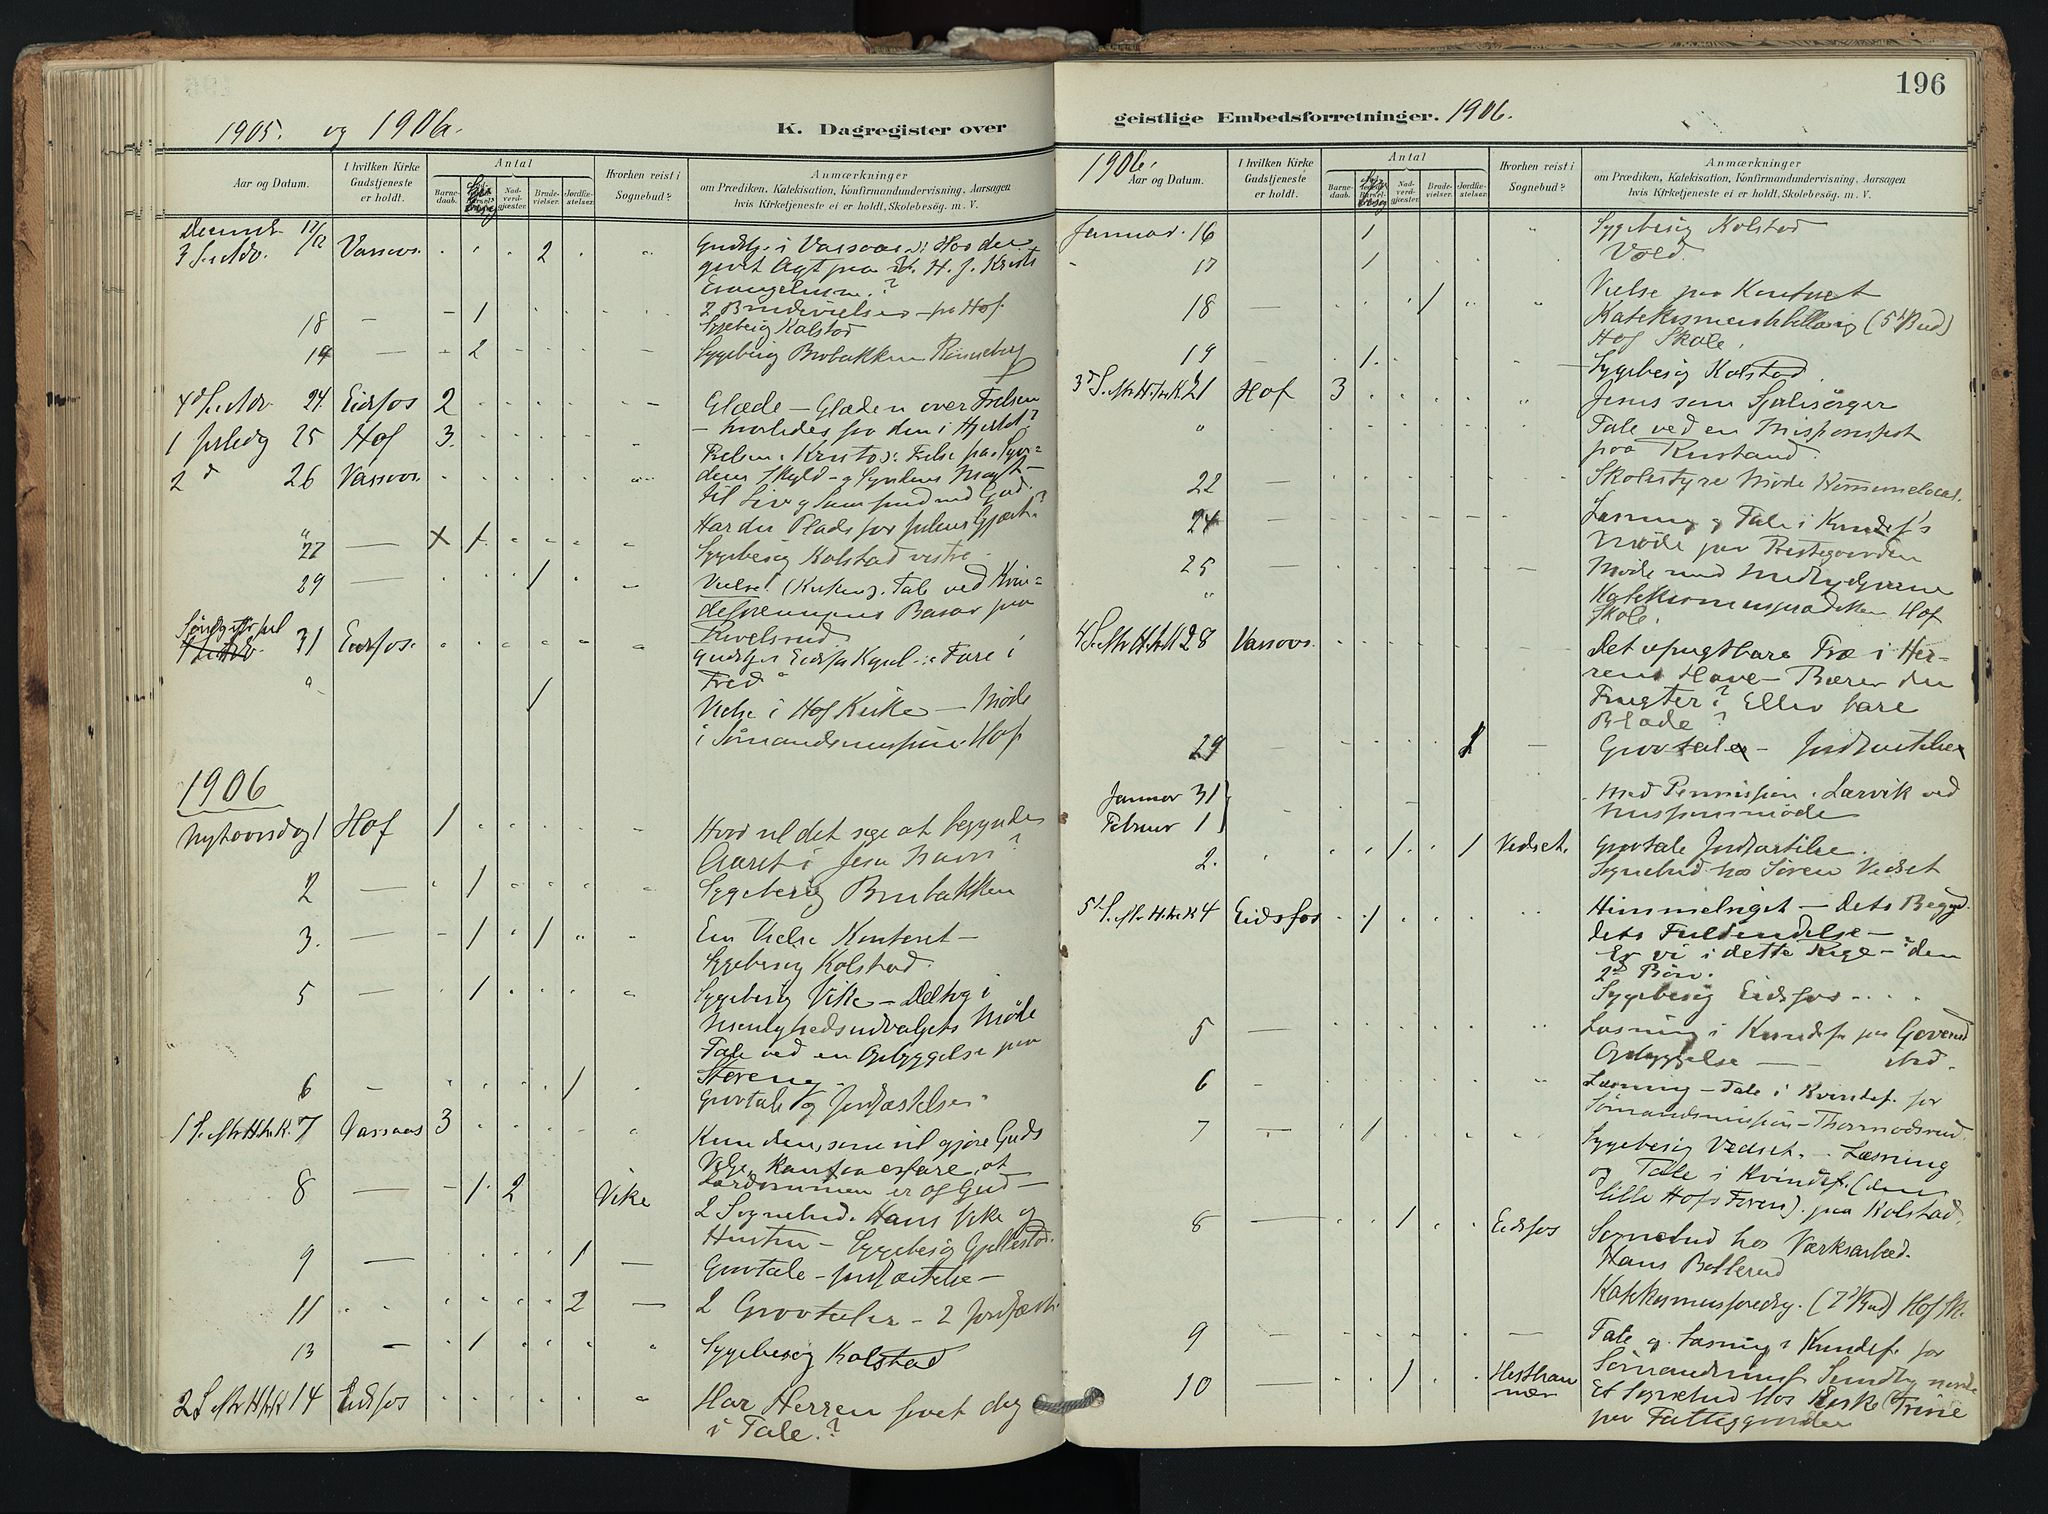 196
1905. og 1906.
K. Dagregister over
geistlige Embedsforretninger. 1906.
Aar og Datum.
I hvilken Kirke Gudstjeneste er holdt.
Antal
Barnedaab.
Nadverdgjæster.
Brudevielser.
Jordfæstelser.
Hvorhen reist i Sognebud?
Anmærkninger
om Prædiken, Katekisation, Konfirmandundervisning, Aarsagen
hvis Kirketjeneste ei er holdt, Skolebesøg. m. V.
3 S. i Adv. 17/12 Vassaas. 2 Gudstj. i Vassaas: Har du
givet Agt paa H. J. Kristi
Evangelium?
2 Brudevielser – paa Hof.
18 – 1 Sygebesøg Kolstad
19 – 2 Sygebesøg Brobakken
4d S. i Adv. 24. Eidsfos 2 Glæde – Glæden over Frelsen
1 Juledag 25 Hof 3. – hvorledes faa den i Hjertet?
2 d 26 Vassaas. Frelsen i Kristo: Frelse fra Syndens Skyld – og Syndens Magt –
til Liv og Samfund med Gud.
Har du Plads for Julens Gjæst?
27 – Sygebesøg Kolstad vestre.
29 – 1 Vielse (Kirken). Tale ved Kvindeforeningens Basar paa
31 Eidsfos. Gudstj. Eidsfos Kapel: Fare i
Fred"
" 1 Vielse i Hof Kirke – Møde
i Sømandsmissionen Hof
1906
Nytaarsdag 1 Hof 1 Hvad vil det sige at begynde
Aaret i Jesu Navn?
2 – 1 Sygebesøg Brobakken
3. – 1 1 En Vielse Kontoret –
Sygebesøg Kolstad.
5 – 1 Sygebesøg Vike – Deltog i
Menighedsudvalgets Møde
Tale ved en Opbyggelse paa
6 – 1 Gravtale og Jordfæstelse.
1 S. e. H. t. K. 7 Vassaas 3 Kun den, som vil gjøre Guds
Vilje, kan faa erfare, at
Lærdommen er af Gud –
8 – 1. 2 Vike 2 Sognebud. Hans Vike og
Hustru – Sygebesøg Gjellestad.
9 – 1 – Gravtale – Jordfæstelse –
11 2 – 2 Gravtaler – 2 Jordfæst.
13 – 1 Sygebesøg Kolstad
2 S. e. H. t. K 14 Eidsfos Har Herren faaet dig
i Tale?
1906.
Aar og Datum.
I hvilken Kirke Gudstjeneste er holdt.
Antal
Barnedaab.
Nadverdgjæster.
Brudevielser.
Jordfæstelser.
Hvorhen reist i Sognebud?
Anmærkninger
om Prædiken, Katekisation, Konfirmandundervisning, Aarsagen
hvis Kirketjeneste ei er holdt, Skolebesøg. m. V.
Januar. 16 1 Sygebesøg Kolstad
17 1 Vold.
18 – 1 Vielse paa Kontoret
(5t Bud)
Hof Skole.
19 – 1. Sygebesøg Kolstad.
3d S. e. H. t. K. 21 Hof 3 Jesus som Sjælesørger
" Tale ved en Missionsfest
paa
22 – Skolestyre Møde Kommunelocal.
24 – Læsning og Tale i Kvindef's
Møde paa Prestegaarden
25 – Møde med Medhjælperne
" Hof
Skole.
4 S. e. H. t. K 28 Vassaas. Det ufrugtbare Træ i Herrens Have – Bærer du
Frugter? Eller bare
Blade?
29 – 1 – Gravtale – Jordfæstelse
Januar 31 Larvik ved
Februar 1 Missionsmøde
2. 1 1 Vedset. Gravtale Jordfæstelse.
Sognebud hos Søren Vedset
5t S. e. H. t. K 4 Eidsfos 1 Himmelriget – dets Begynd.
dets Fuldendelse –
Er vi i dette Rige –
2d Bøn.
Sygebesøg Eidsfos
5 – Læsning i Kvindef. paa
Opbyggelse –
6 – Læsning – Tale i Kvindef. for
Sømandsmission – Thormodsrud.
7 – 1 Sygebesøg Vedset. – Læsning
og Tale i Kvindef. (den
lille Hofs Foren). paa Kolstad.
8 – 1 Eidsfos Sognebud hos Værksarbeid.
Hans Bollerud
(7d Bud) Hof Sk.
9 – – Tale og Læsning i Kvindef. for
10 – 1 Et Sognebud hos
paa Fattiggaarden